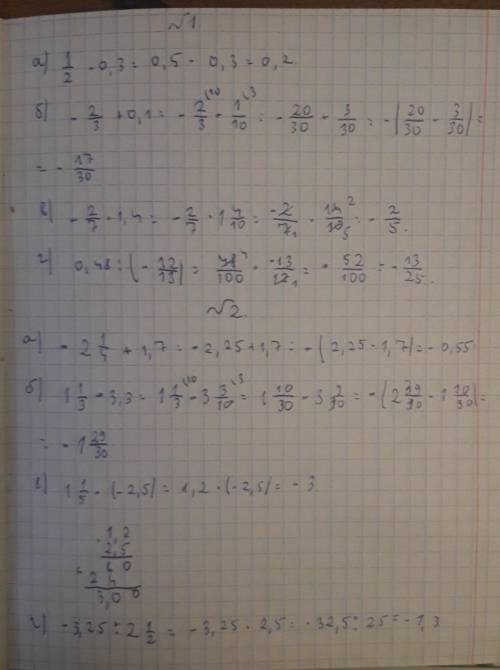 √1
а) 1/2 - 0,3 = 0,5 - 0,3 = 0,2
б) - 2/3 + 0,1 = - 2/3 + 1/10 = - 20/30 + 3/30 = - (20/30 - 3/30) =
= - 17/30
в) - 2/7 · 1,4 = - 2/7 · 1 4/10 = -2/7 · 14/10 = - 2/5.
г) 0,48 : (- 12/13) = 48/100 · -13/12 = - 52/100 = - 13/25.
√2.
а) - 2 1/4 + 1,7 = - 2,25 + 1,7 = - (2,25 - 1,7) = - 0,55
б) 1 1/3 - 3,3 = 1 1/3 - 3 3/10 = 1 10/30 - 3 9/30 = - (2 39/30 - 1 10/30) =
= - 1 29/30
в) 1 1/5 · (-2,5) = 1,2 · (-2,5) = - 3
1,2
2,5
6 0
+ 2 4
3,0 0
г) -3,25 : 2 1/2 = - 3,25 : 2,5 = - 32,5 : 25 = - 1,3